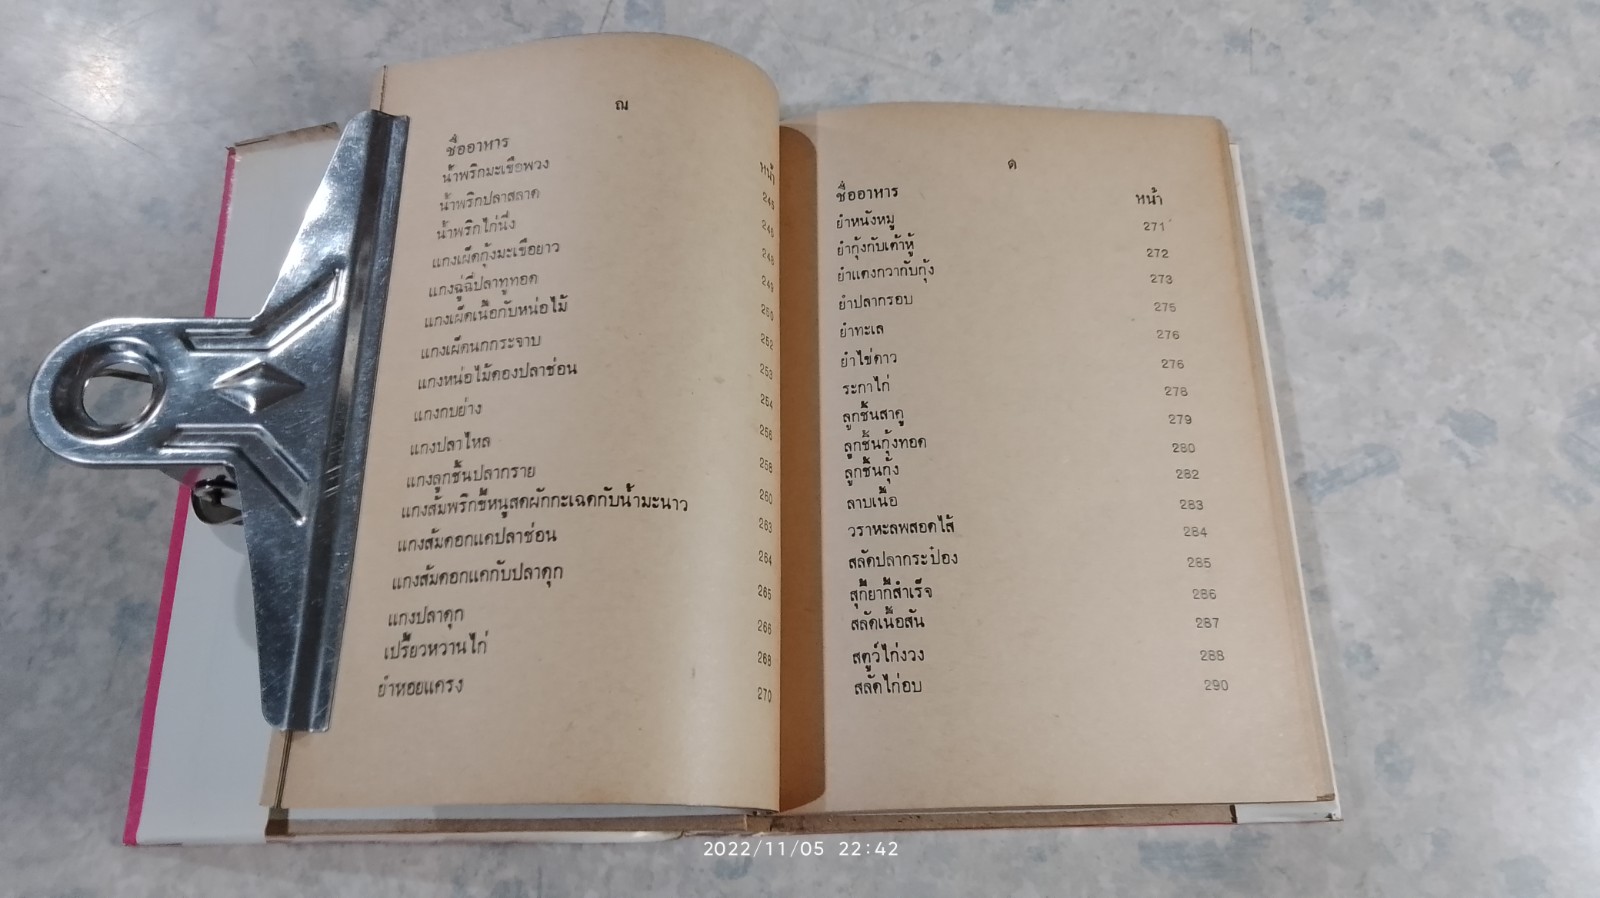 ฌ
ชื่ออาหาร
หน้า
น้ำพริกมะเขือพวง 245
น้ำพริกปลาสลาด 246
น้ำพริกไก่นึ่ง 248
แกงเผ็ดกุ้งมะเขือยาว 249
แกงฉู่ฉี่ปลาทูทอด 250
แกงเผ็ดเนื้อกับหน่อไม้ 252
แกงเผ็ดนกกระจาบ 253
แกงหน่อไม้ดองปลาช่อน 254
แกงกบย่าง 256
แกงปลาไหล 258
แกงลูกชิ้นปลากราย 260
แกงส้มพริกขี้หนูสดผักกะเฉดกับน้ำมะนาว 263
แกงส้มดอกแคปลาช่อน 264
แกงส้มดอกแคกับปลาดุก 265
แกงปลาดุก 266
เปรี้ยวหวานไก่ 268
ยำหอยแครง 270
ด
ชื่ออาหาร หน้า
ยำหนังหมู 271
ยำกุ้งกับเต้าหู้ 272
ยำแตงกวากับกุ้ง 273
ยำปลากรอบ 275
ยำทะเล 276
ยำไข่ดาว 276
ระกาไก่ 278
ลูกชิ้นสาคู 279
ลูกชิ้นกุ้งทอด 280
ลูกชิ้นกุ้ง 282
ลาบเนื้อ 283
วราหะลพสอดไส้ 284
สลัดปลากระป๋อง 285
สุกี้ยากี้สำเร็จ 286
สลัดเนื้อสัน 287
สตูว์ไก่งวง 288
สลัดไก่อบ 290
2022/11/05 22:42